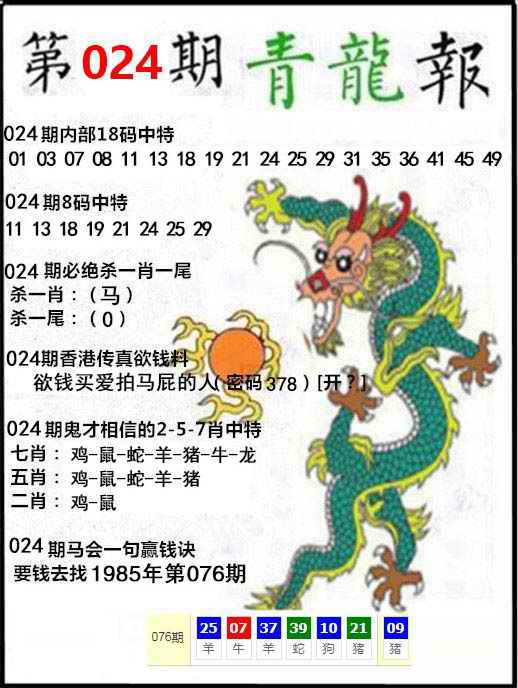 第024期青龍報
024期内部18码中特
01 03 07 08 11 13 18 19 21 24 25 29 31 35 36 41 45 49
024期8码中特
11 13 18 19 21 24 25 29
024 期必绝杀一肖一尾
杀一肖：（马）
杀一尾：（0）
024期香港传真欲钱料
欲钱买爱拍马屁的人（密码378）[开？]
024期鬼才相信的2-5-7肖中特
七肖：鸡-鼠-蛇-羊-猪-牛-龙
五肖：鸡-鼠-蛇-羊-猪
二肖：鸡-鼠
024期马会一句赢钱诀
要钱去找1985年第076期
076期 25 07 37 39 10 21 09
羊 牛 羊 蛇 狗 猪 猪